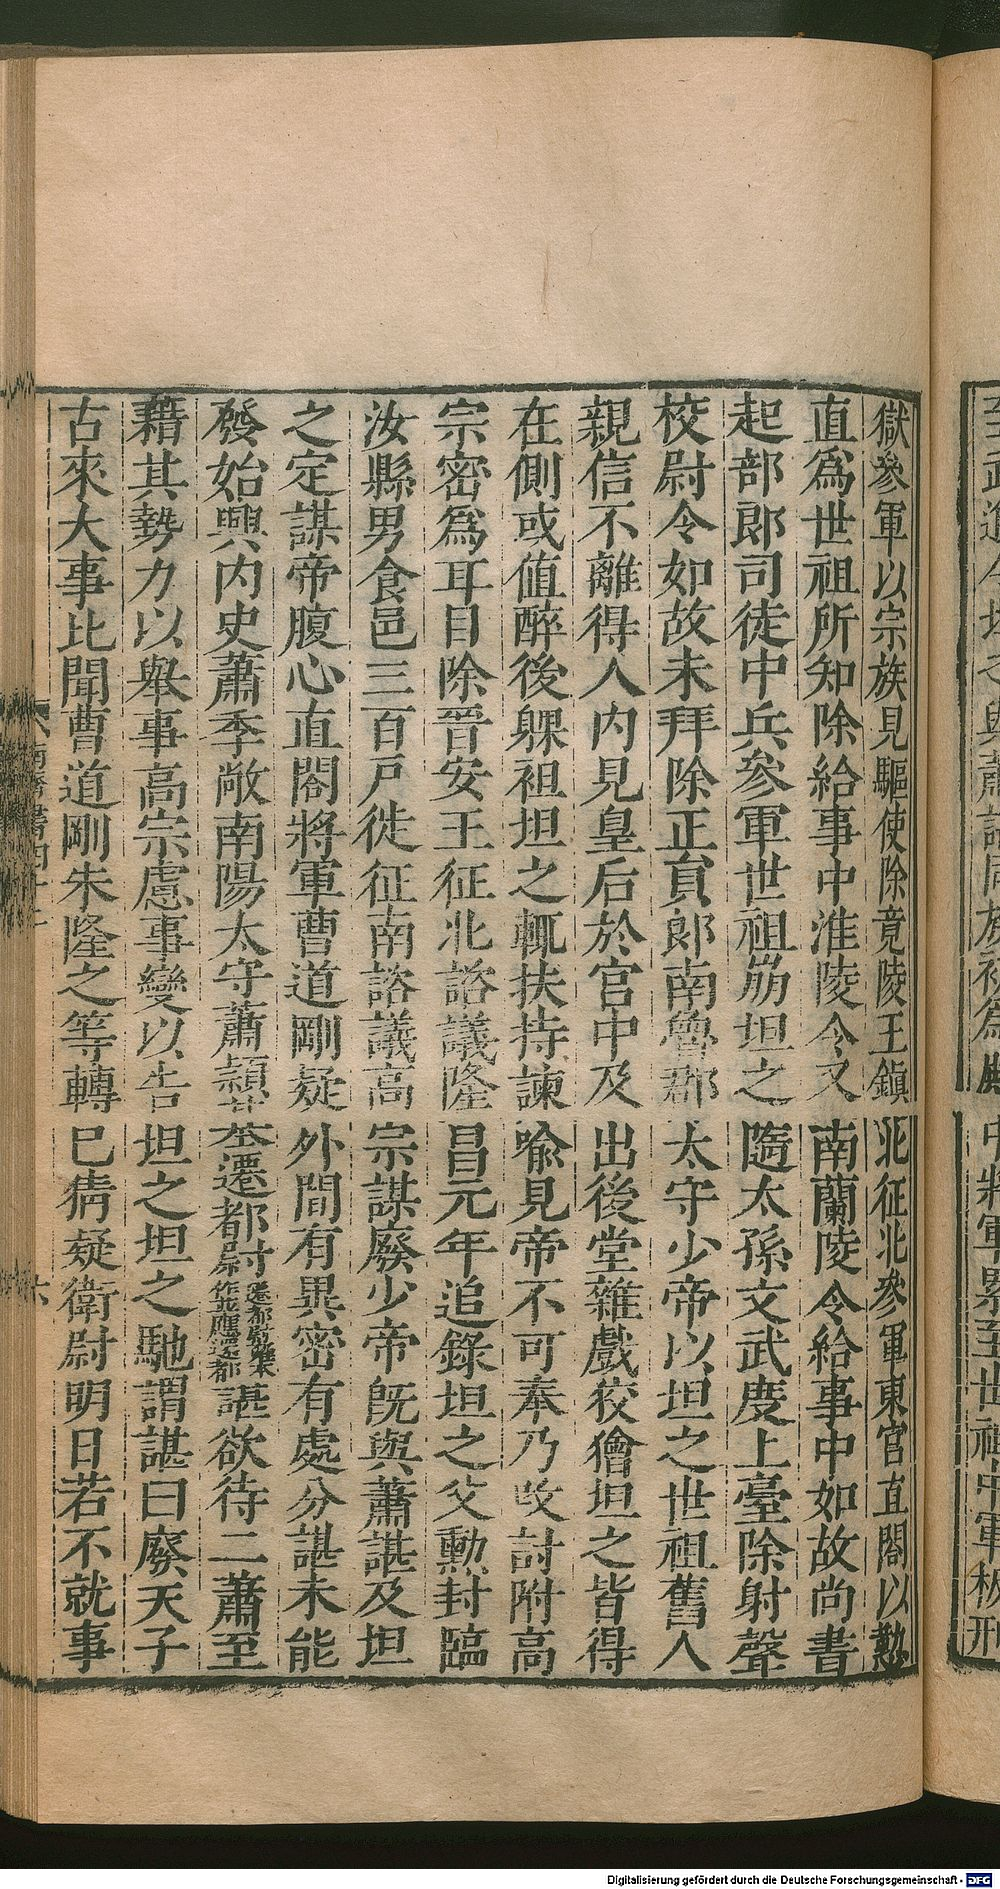 獄參軍以宗族見驅使除竟陵王鎭北征北參軍東宮直閤以勤
直爲世祖所知除給事中淮陵令又南蘭陵令給事中如故尚書
起部郎司徒中兵參軍世祖崩坦之隨太孫文武度上臺除射聲
校尉令如故未拜除正員郎南魯郡太守少帝以坦之世祖舊人
親信不離得入內見皇后於宮中及出後堂雜戲狡獪坦之皆得
在側或值醉後躶袒坦之輒扶持諫喻見帝不可奉乃改討附高
宗密爲耳目除晉安王征北諮議隆昌元年追錄坦之父勳封臨
汝縣男食邑三百戶徙征南諮議高宗謀廢少帝旣與蕭諶及坦
之定謀帝腹心直閤將軍曹道剛疑外間有異密有處分諶未能
發始興內史蕭季敞南陽太守蕭穎基並遷都尉諶欲待二蕭至
藉其勢力以舉事高宗慮事變以告坦之坦之馳謂諶曰廢天子
古來大事比聞曹道剛朱隆之等轉已猜疑衛尉明日若不就事
Digitalisierung gefördert durch die Deutsche Forschungsgemeinschaft - DFG